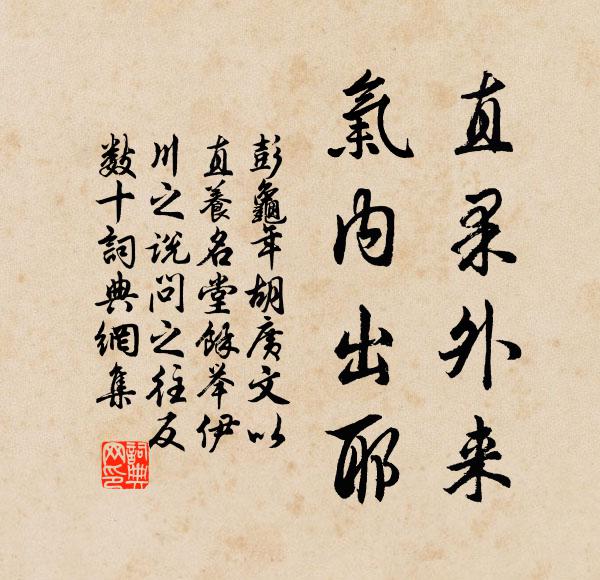 直果外来
氣内出耶
彭龜年胡廣文以
直養名堂餘举伊
川之说問之往反
数十詞典網集
詞典網印